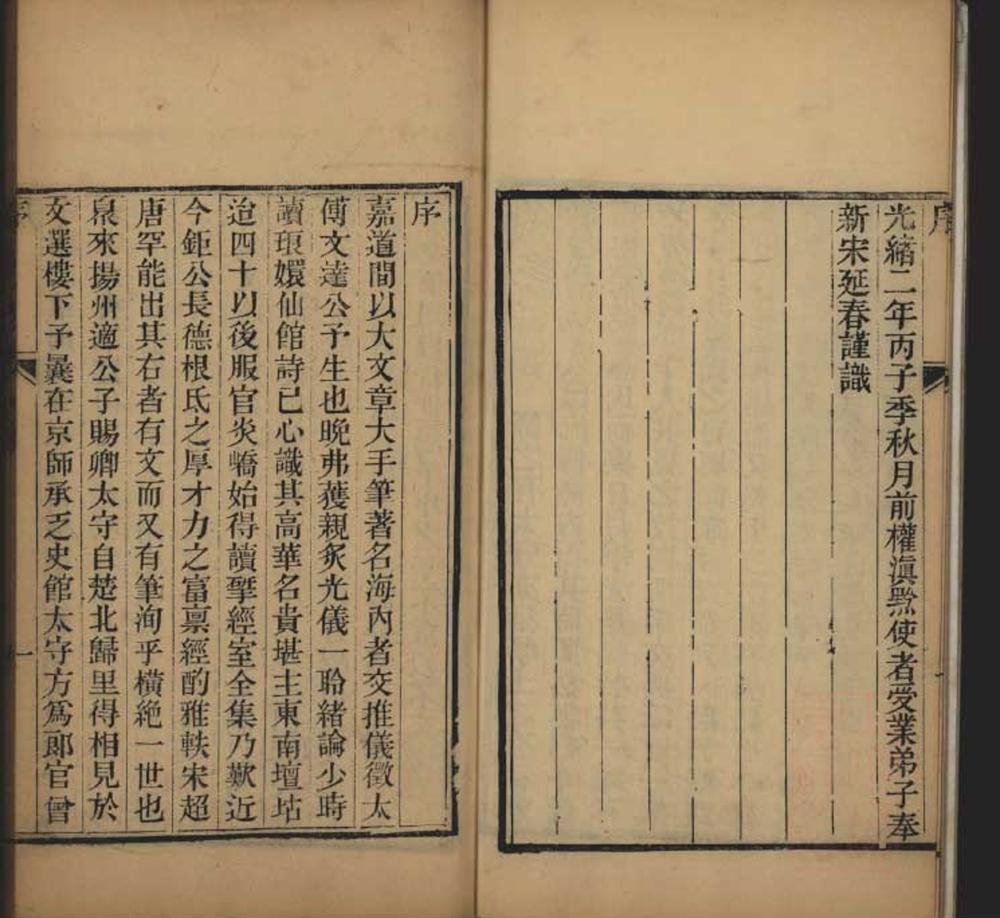 光緒二年丙子季秋月前權滇黔使者受業弟子奉
新宋延春謹識
序
嘉道間以大文章大手筆著名海內者交推儀徵太
傅文達公予生也晚弗獲親炙光儀一聆緒論少時
讀琅嬛仙館詩已心識其高華名貴堪主東南壇坫
迨四十以後服官炎嶠始得讀揅經室全集乃歎近
今鉅公長德根氐之厚才力之富禀經酌雅軼宋超
唐罕能出其右者有文而又有筆洵乎橫絶一世也
泉來揚州適公子賜卿太守自楚北歸里得相見於
文選樓下予曩在京師承乏史館太守方爲郎官曾
一